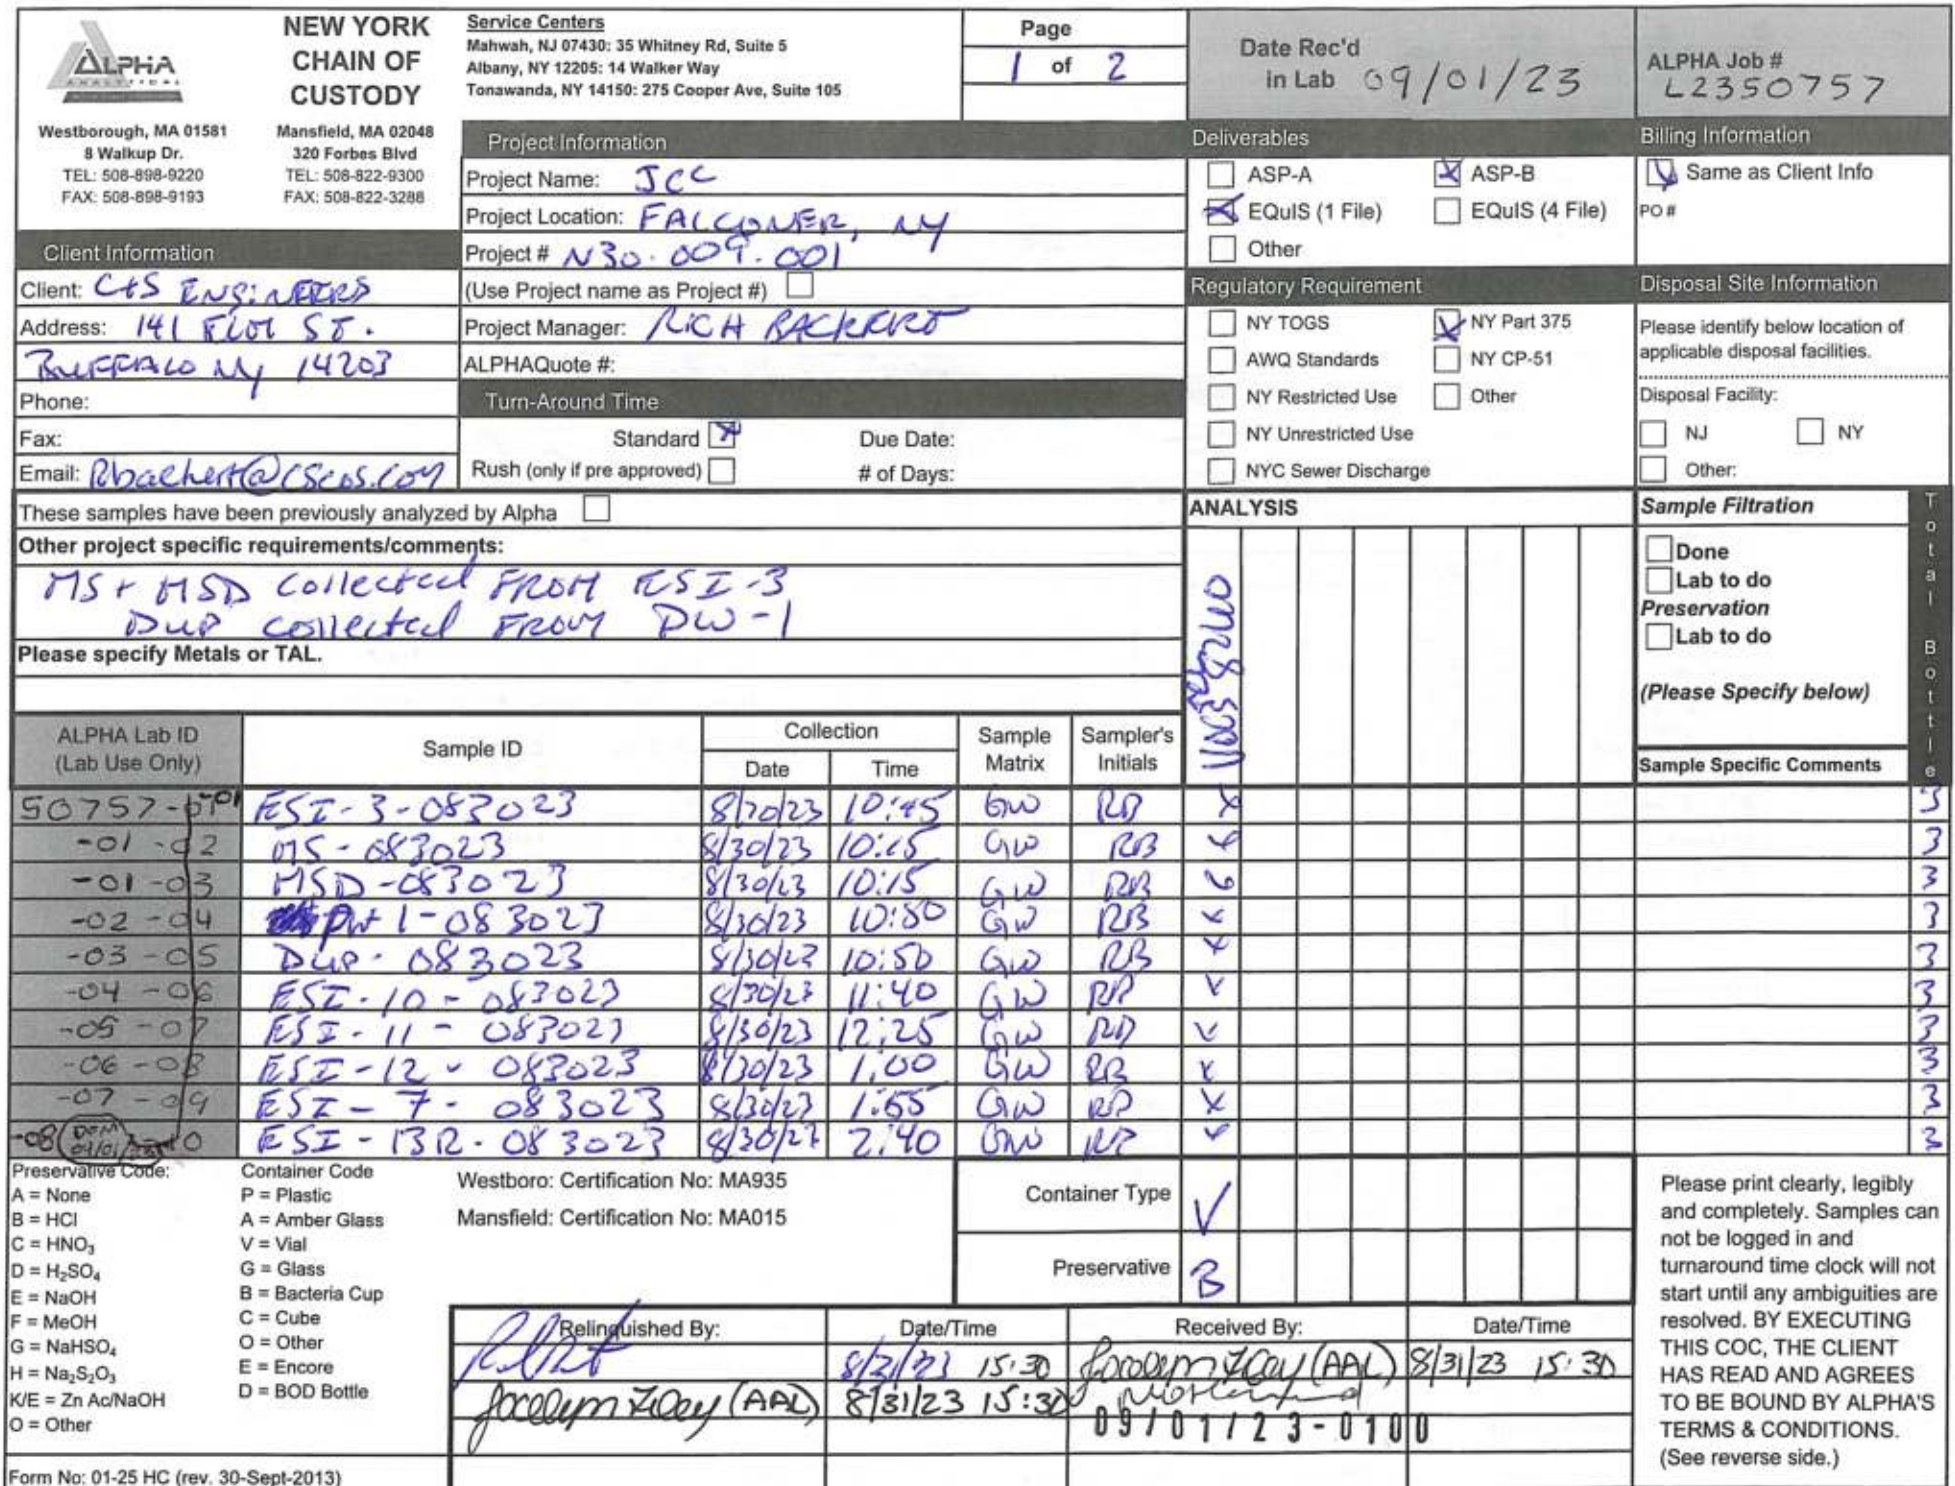 ALPHA
ANALYTICAL
NEW YORK
CHAIN OF
CUSTODY
Westborough, MA 01581
8 Walkup Dr.
TEL: 508-898-9220
FAX: 508-898-9193
Mansfield, MA 02048
320 Forbes Blvd
TEL: 508-822-9300
FAX: 508-822-3288
Service Centers
Mahwah, NJ 07430: 35 Whitney Rd, Suite 5
Albany, NY 12205: 14 Walker Way
Tonawanda, NY 14150: 275 Cooper Ave, Suite 105
Page
1 of 2
Date Rec'd
in Lab 09/01/23
ALPHA Job #
L2350757
Project Information
Project Name: JCC
Project Location: FALCONER, NY
Project # N30.009.001
(Use Project name as Project #)
Project Manager: RICH BACKERT
ALPHAQuote #:
Turn-Around Time
Standard X Due Date:
Rush (only if pre approved) # of Days:
Client Information
Client: C+S ENGINEERS
Address: 141 ELM ST.
BUFFALO NY 14203
Phone:
Fax:
Email: Rbackert@cscos.com
Deliverables
ASP-A X ASP-B
X EQuIS (1 File) EQuIS (4 File)
Other
Regulatory Requirement
NY TOGS X NY Part 375
AWQ Standards NY CP-51
NY Restricted Use Other
NY Unrestricted Use
NYC Sewer Discharge
Billing Information
Same as Client Info
PO #
Disposal Site Information
Please identify below location of
applicable disposal facilities.
Disposal Facility:
NJ NY
Other:
These samples have been previously analyzed by Alpha
Other project specific requirements/comments:
MS + MSD collected FROM ESI-3
DUP collected FROM DW-1
Please specify Metals or TAL.
ANALYSIS
Sample Filtration
Done
Lab to do
Preservation
Lab to do
(Please Specify below)
Total Bottle
ALPHA Lab ID
(Lab Use Only)
Sample ID
Collection
Date Time
Sample
Matrix
Sampler's
Initials
Sample Specific Comments
50757-01 -01 ESI-3-083023 8/30/23 10:45 GW RB X 3
-01 -02 MS-083023 8/30/23 10:15 GW RB X 3
-01 -03 MSD-083023 8/30/23 10:15 GW RB 3
-02 -04 1-083023 8/30/23 10:50 GW RB X 3
-03 -05 Dup-083023 8/30/23 10:50 GW RB X 3
-04 -06 ESI-10-083023 8/30/23 11:40 GW RB X 3
-05 -07 ESI-11-083023 8/30/23 12:25 GW RB X 3
-06 -08 ESI-12-083023 8/30/23 1:00 GW RB X 3
-07 -09 ESI-7-083023 8/30/23 1:55 GW RB X 3
-08 ESI-13R-083023 8/30/23 2:40 GW RB X 3
Preservative Code:
A = None
B = HCl
C = HNO₃
D = H₂SO₄
E = NaOH
F = MeOH
G = NaHSO₄
H = Na₂S₂O₃
K/E = Zn Ac/NaOH
O = Other
Container Code
P = Plastic
A = Amber Glass
V = Vial
G = Glass
B = Bacteria Cup
C = Cube
O = Other
E = Encore
D = BOD Bottle
Westboro: Certification No: MA935
Mansfield: Certification No: MA015
Container Type V
Preservative B
Relinquished By: Date/Time Received By: Date/Time
8/31/23 15:30 (AAL) 8/31/23 15:30
Jocelyn (AAL) 8/31/23 15:30
09/01/23-0100
Please print clearly, legibly
and completely. Samples can
not be logged in and
turnaround time clock will not
start until any ambiguities are
resolved. BY EXECUTING
THIS COC, THE CLIENT
HAS READ AND AGREES
TO BE BOUND BY ALPHA'S
TERMS & CONDITIONS.
(See reverse side.)
Form No: 01-25 HC (rev. 30-Sept-2013)